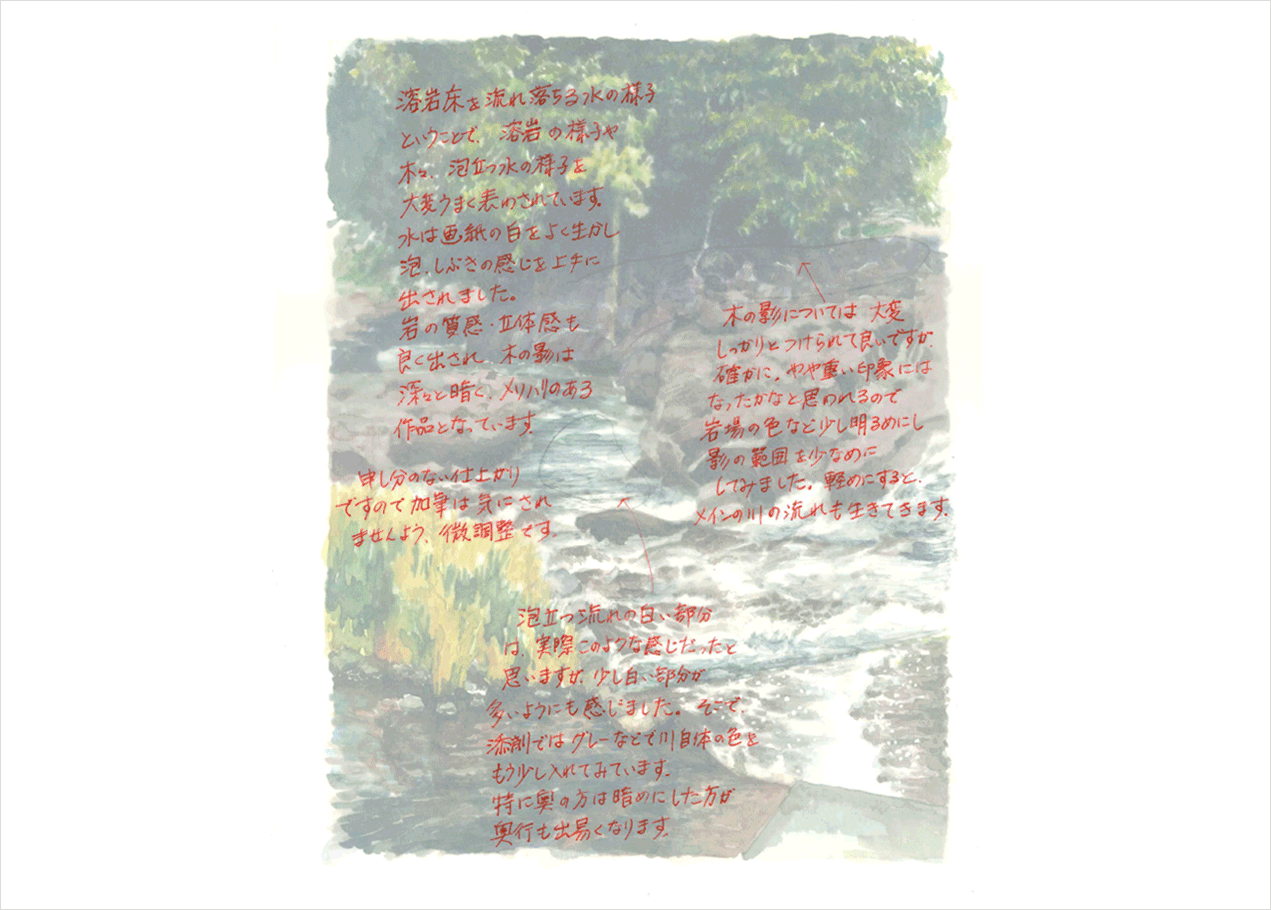 溶岩床を流れ落ちる水の様子
ということで、溶岩の様子や
木々、泡立つ水の様子を
大変うまく表わされています。
水は画紙の白をよく生かし
泡、しぶきの感じを上手に
出されました。
岩の質感・立体感も
良く出され、木の影は
深々と暗く、メリハリのある
作品となっています。
申し分のない仕上がり
ですので加筆は気にされ
ませんよう、微調整です。
木の影については 大変
しっかりとつけられて良いですが、
確かに、やや重い印象には
なったかなと思われるので
岩場の色など少し明るめにし
影の範囲を少なめに
してみました。軽めにすると、
メインの川の流れも生きてきます。
泡立つ流れの白い部分
は、実際このような感じだったと
思いますが、少し白い部分が
多いようにも感じました。そこで、
添削ではグレーなどで川自体の色を
もう少し入れてみています。
特に奥の方は暗めにした方が
奥行も出易くなります。